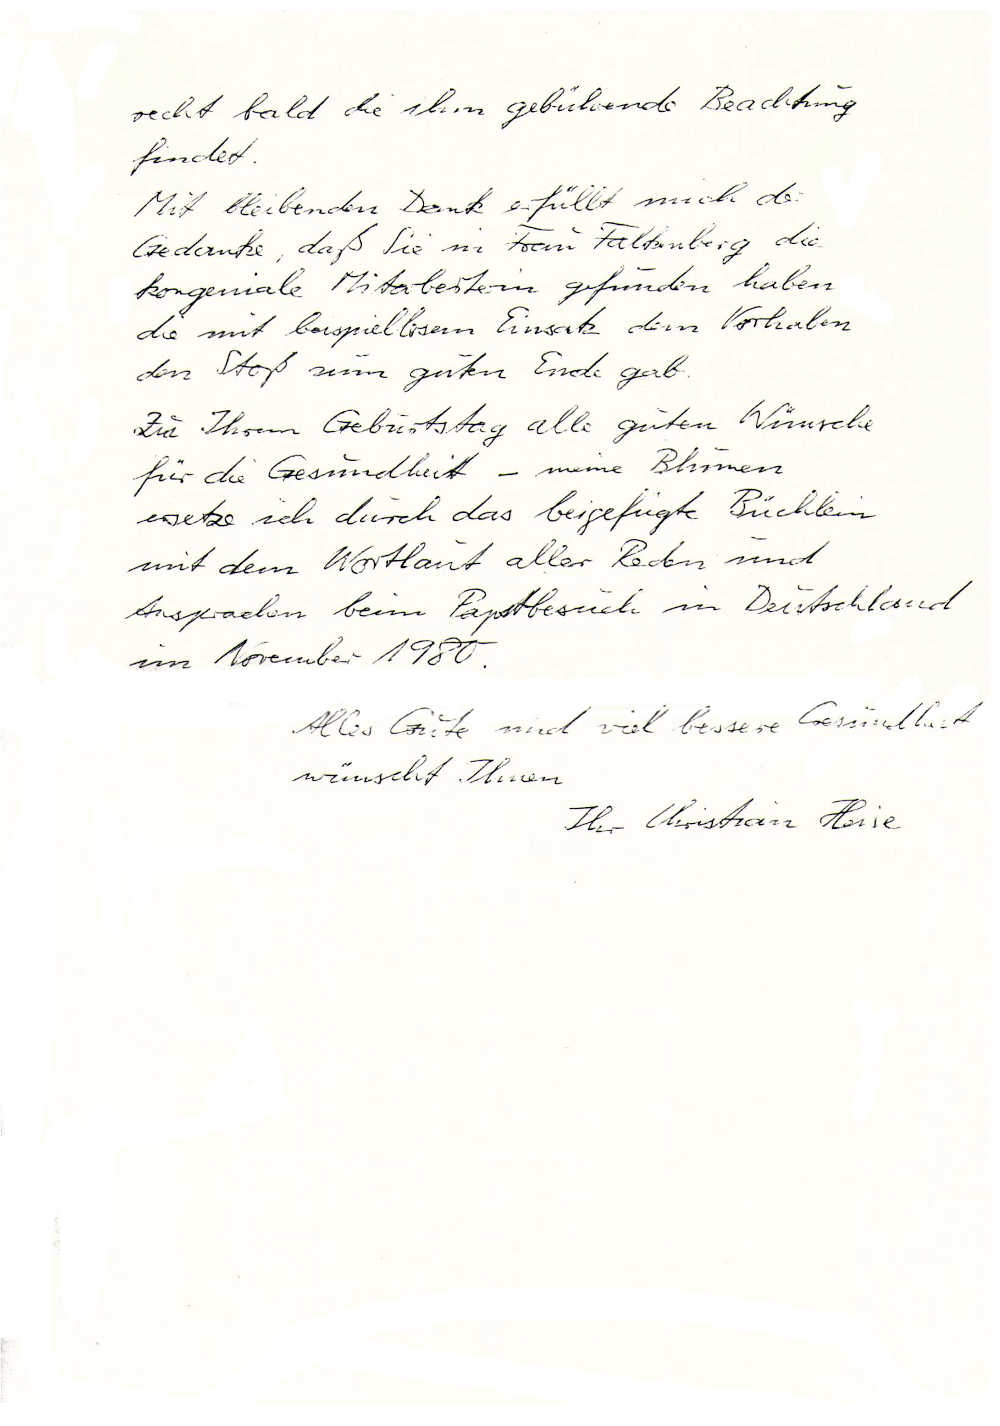 recht bald die ihm gebührende Beachtung
findet.
Mit bleibenden Dank erfüllt mich der
Gedanke, daß Sie in Frau Faltenberg die
kongeniale Mitarbeiterin gefunden haben
die mit beispiellosem Einsatz dem Vorhaben
den Stoß zum guten Ende gab.
Zu Ihrem Geburtstag alle guten Wünsche
für die Gesundheit – meine Blumen
ersetze ich durch das beigefügte Büchlein
mit dem Wortlaut aller Reden und
Ansprachen beim Papstbesuch in Deutschland
im November 1980.
Alles Gute und viel bessere Gesundheit
wünscht Ihnen
Ihr Christian Heise